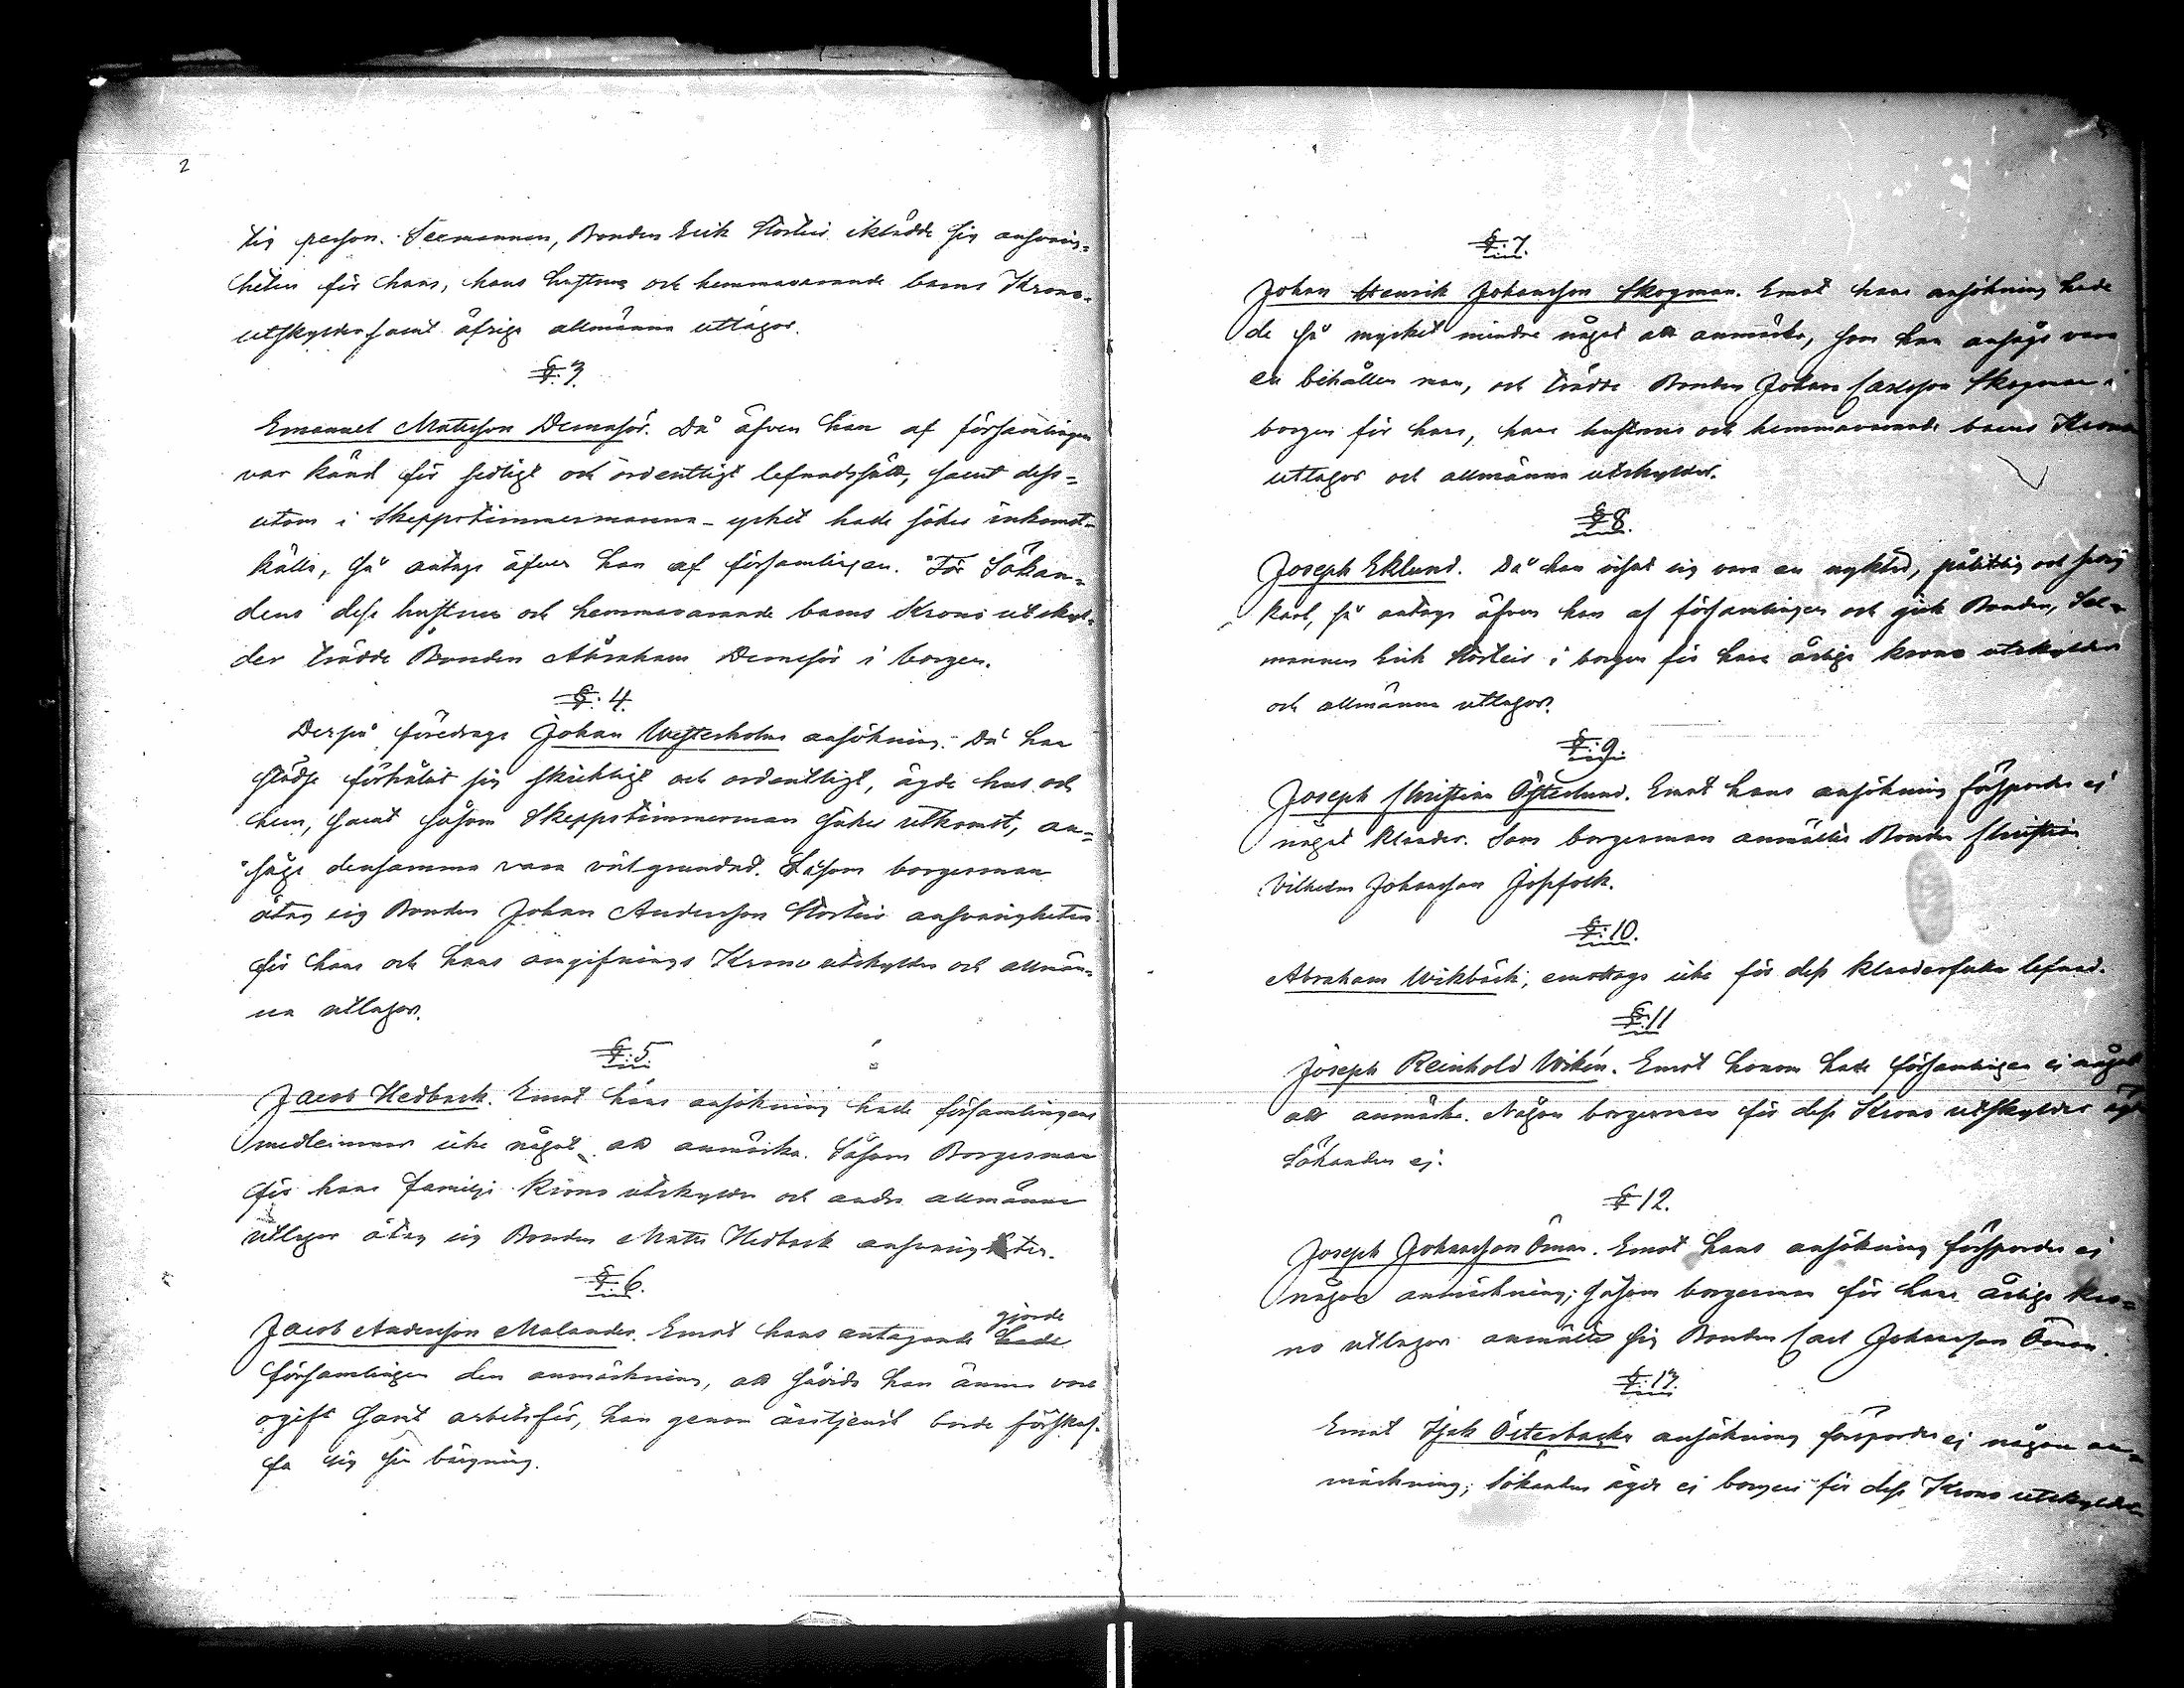 2
tig person. Sexmannen, Bonden Erik Störteis iklädde sig ansvarig-
heten för hans, hans hustrus och hemmavarande barns Krono-
utskylder samt öfriga allmänna utlagor.
§. 3.
Emanuel Matsson Dernsjör. Då äfven han af församlingen
var känd för sedligt och ordentligt lefnadssätt, samt dess-
utom i Skeppstimmermanna-yrket hade säker inkomst-
källa, så antogs äfven han af församlingen. För Sökan-
dens dess hustrus och hemmavarande barns Krono utskyl-
der trädde Bonden Abraham i borgen.
§. 4.
Derpå föredrogs Johan Westerholms ansökning. Då han
städse förhållit sig skickligt och ordentligt, ägde hus och
hem, samt såsom Skeppstimmerman säker utkomst, an-
sågs densamma vara välgrundad. Såsom borgesman
åtog sig Bonden Johan Andersson Störteis ansvarigheten
för hans och hans angifnings Krono utskylder och allmän-
na utlagor.
§. 5.
Jacob Hedback. Emot hans ansökning hade församlingens
medlemmar icke något att anmärka. Såsom Borgesman
för hans familjs Krono utskylder och andra allmänna
utlagor åtog sig Bonden Matts Hedback ansvarigheten.
§. 6.
Jacob Andersson Malander. Emot hans antagande hade gjorde
församlingen den anmärkning, att såvida han ännu vore
ogift samt arbetsför, han genom årstjenst borde förskaf-
fa sig sin bärgning.
§. 7.
Johan Henrik Johansson Skogman. Emot hans ansökning hade
de så mycket mindre något att anmärka, som han ansågs vara
en behållen man, och trädde Bonden Johan Carlsson Skogman i
borgen för hans, hans hustrus och hemmavarande barns Krono
utlagor och allmänna utskylder.
§ 8.
Joseph Eklund. Då han visat sig vara en nykter, pålitlig och
karl, så antogs äfven han af församlingen och gick Bonden, Sex-
mannen Erik Störteis i borgen för hans årliga krono utskylder
och allmänna utlagor.
§. 9.
Joseph Christian Österlund. Emot hans ansökning förspordes ej
något klander. Som borgesman anmältes Bonden Christian
Vilhelm Johansson Jossfolk.
§. 10.
Abraham Wikbäck, emottogs icke för dess klanderfulla lefnad.
§. 11
Joseph Reinhold Wikén. Emot honom hade församlingen ej något
att anmärka. Någon borgesman för dess Krono utskylder äger
Sökanden ej.
§ 12.
Joseph Johansson Öman. Emot hans ansökning försporde ej
någon anmärkning; såsom borgesman för hans årliga kro-
no utlagor anmälte sig Bonden Carl Johansson Öman.
§. 13.
Emot Isak Österbacks ansökning försporde ej någon an-
märkning; Sökanden ägde ej borgen för dess Krono utskylder